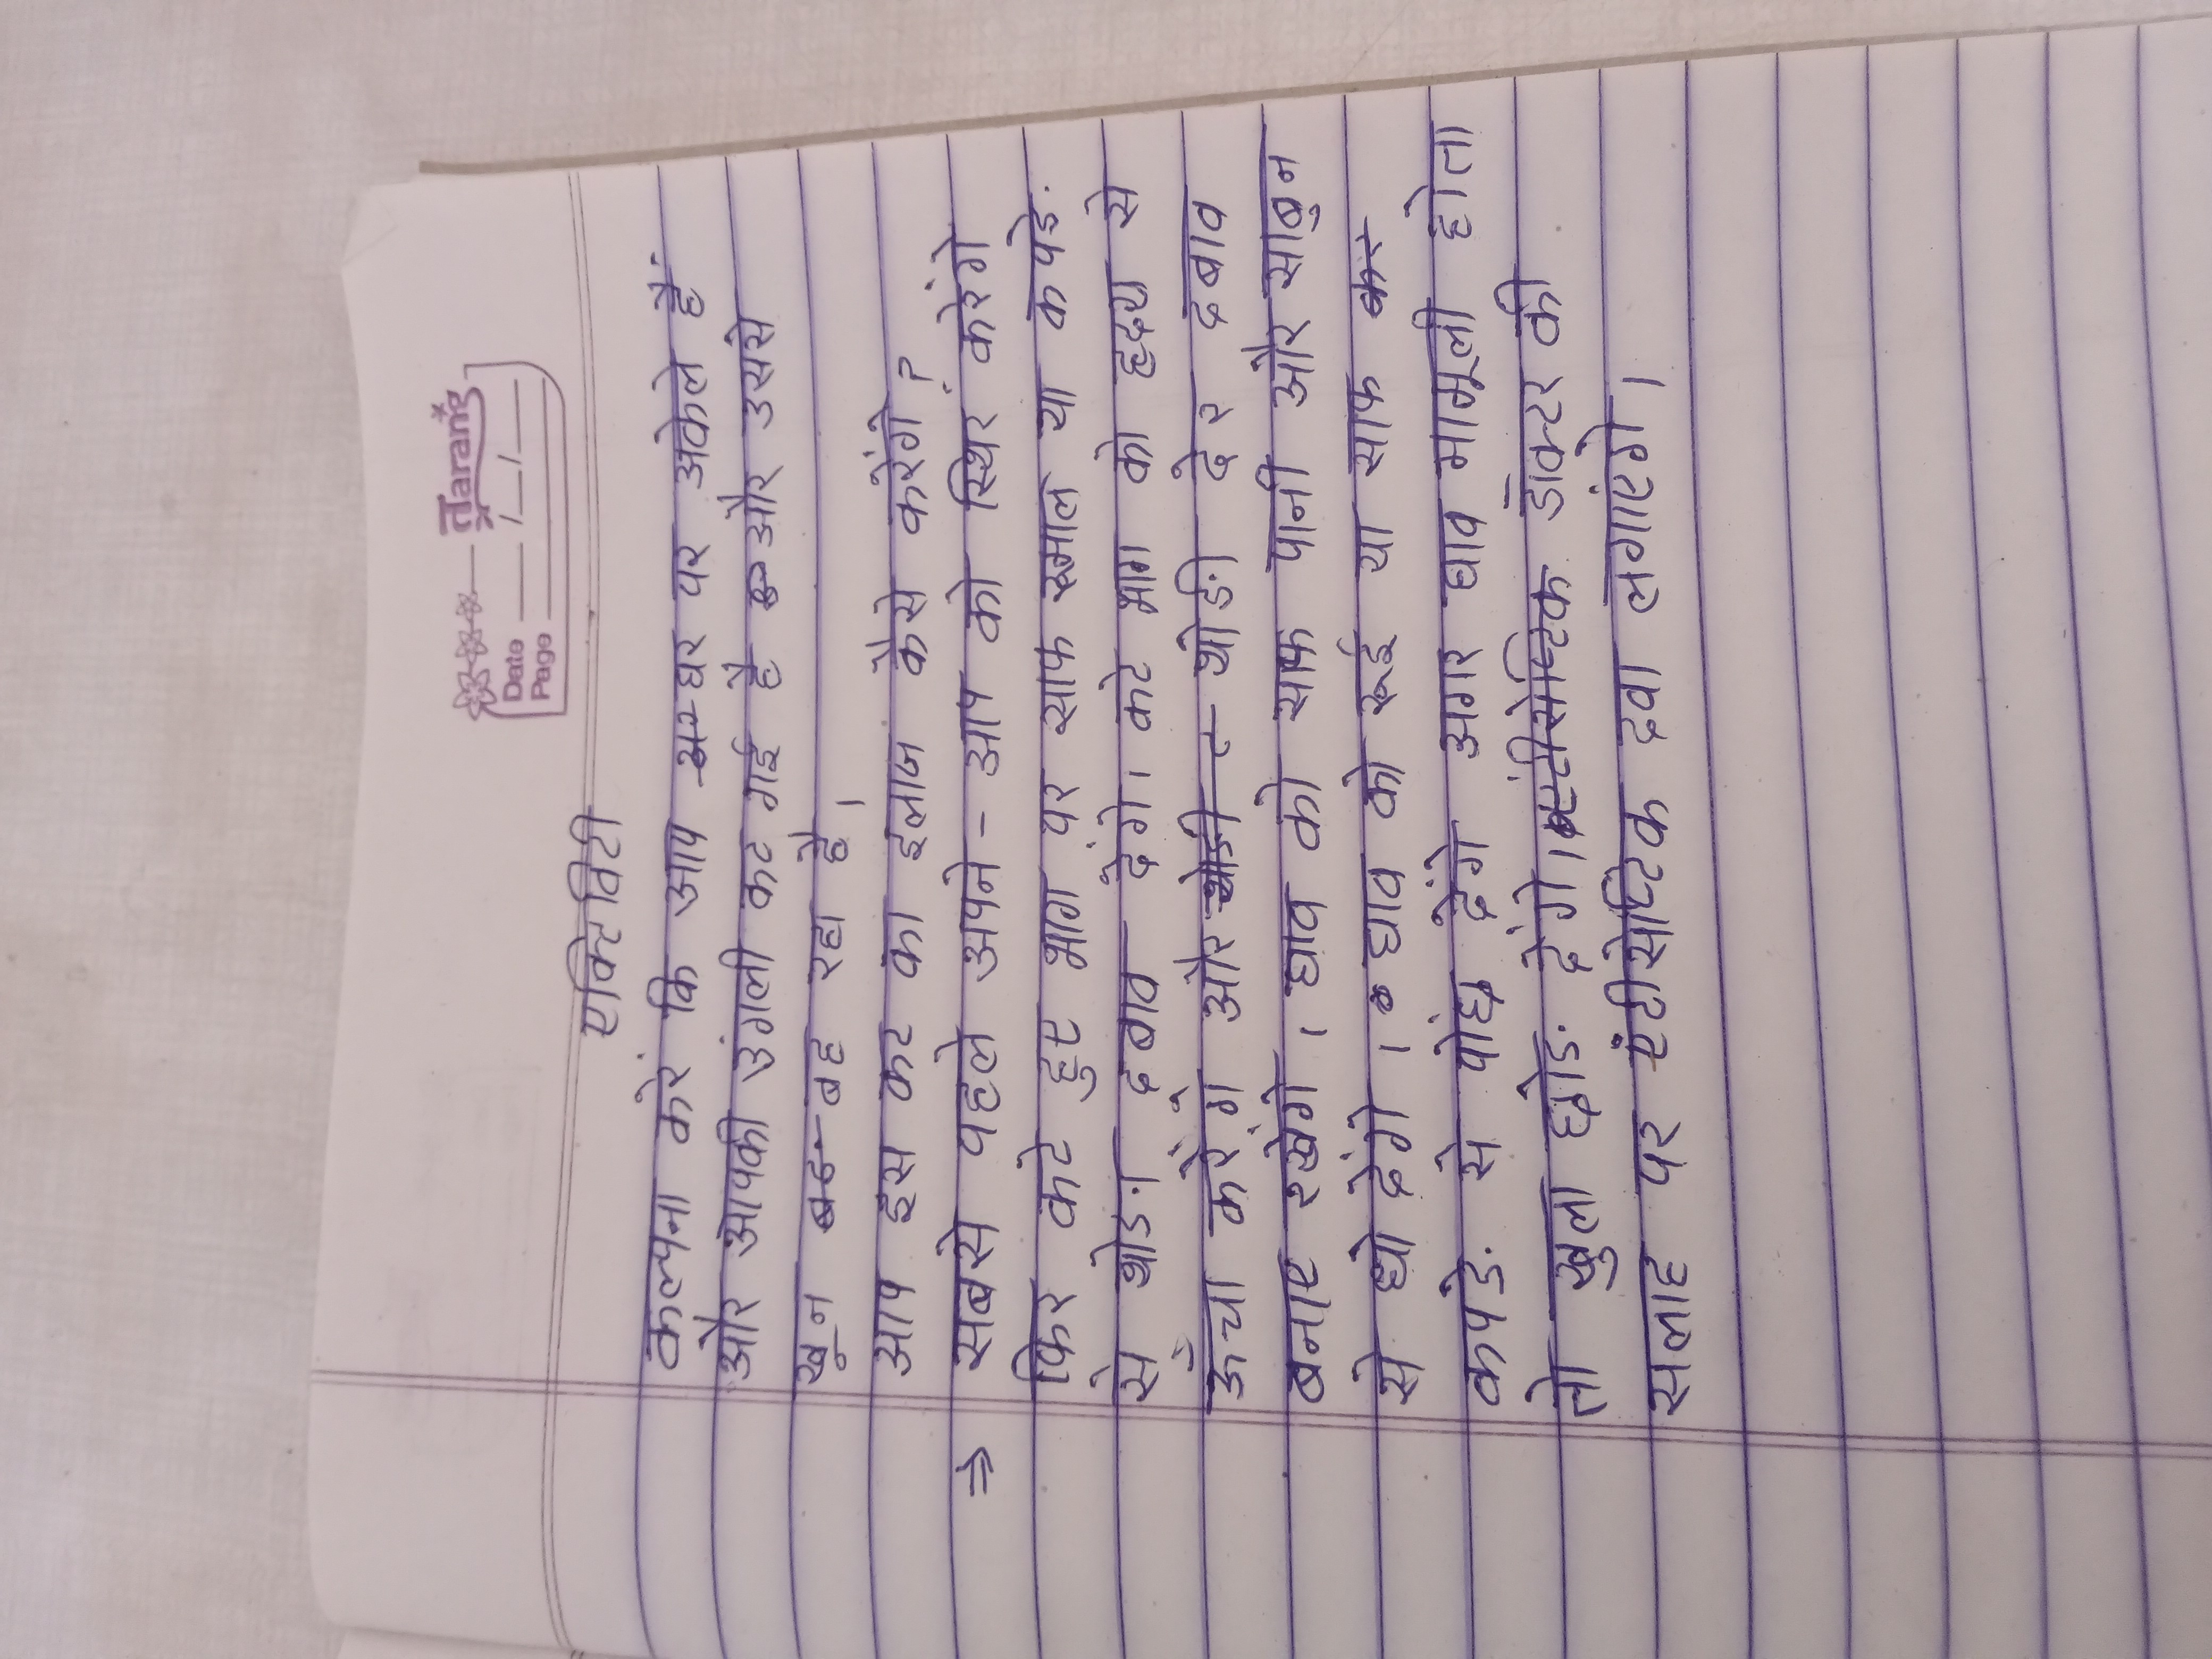 तarang
Date __/__/__
Page
एक्टिविटी
कल्पना करें कि आप घर पर अकेले हैं
और आपकी उंगली कट गई है और उससे
खून बह रहा है।
आप इस कट का इलाज कैसे करेंगे ?
⇒ सबसे पहले अपने-आप को स्थिर करेंगे
फिर कटे हुए भाग पर साफ रुमाल या कपड़े
से थोड़ा दबाव देंगे। कटे भाग को हृदय से
ऊँचा करेंगे और थोड़ी देर दबाव
बनाए रखेंगे। घाव को साफ पानी और साबुन
से धो देंगे। घाव को रूई या साफ
कपड़े से पोंछ देंगे अगर घाव मामूली होता
तो खुला छोड़ देंगे। डॉक्टर की
सलाह पर एंटीसेप्टिक दवा लगाएंगे।